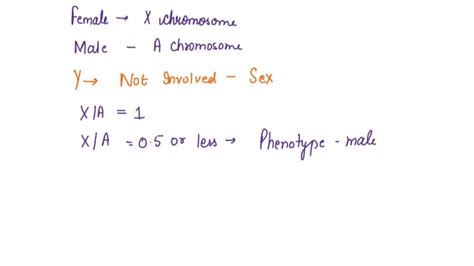 Female → X chromosome
Male - A chromosome
Y → Not Involved - Sex
X/A = 1
X/A = 0.5 or less → Phenotype - male